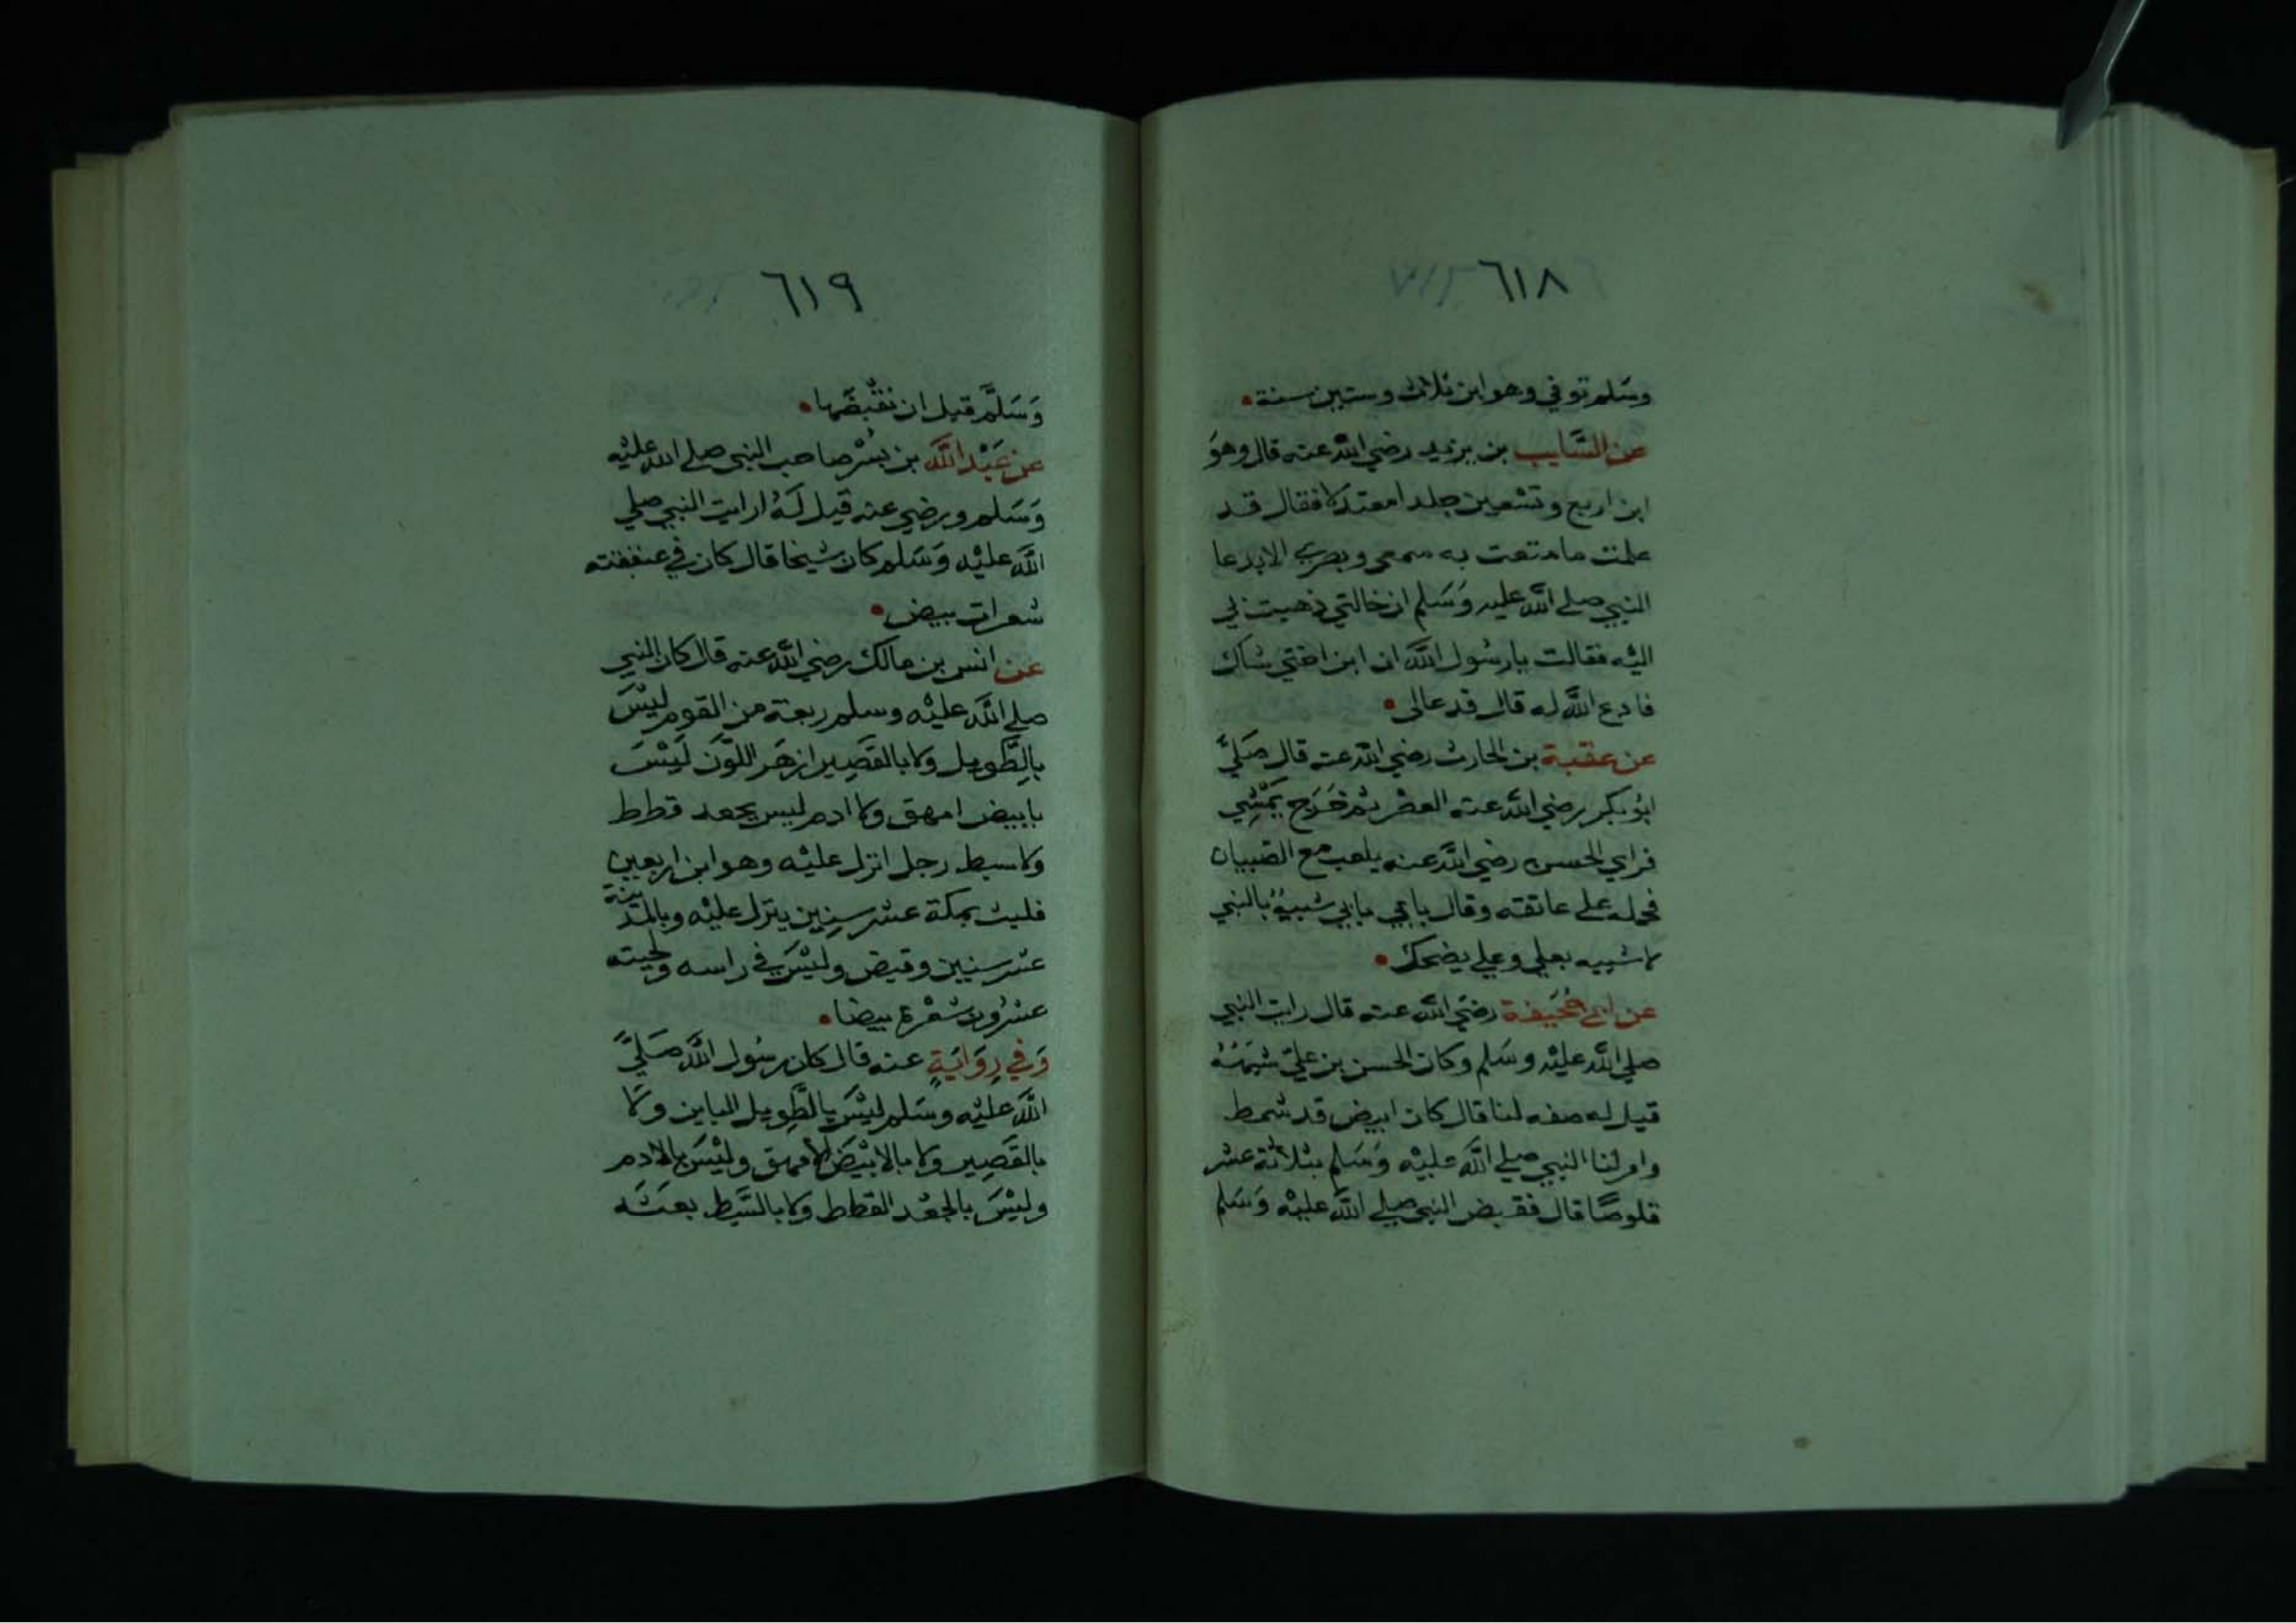 ٦١٨
وسَلم توفي وهو ابن ثلاث وستين سنة •
عن السَّايب بن يزيد رضي الله عنه قال وهوَ
ابن اربع وتسْعين جلدا معتدلا فقال قد
علمت ما متعت به سمعي وبصري الا بدعا
النبي صلي اللّه عليه وَسَلم ان خالتي ذهبت بي
اليْه فقالت يا رسُول اللَّه ان ابن اختي شاك
فادع اللَّه له قال فدعا لي •
عن عقبة بن الحارث رضي اللّه عنه قال صَلَّي
ابُو بكر رضي اللّه عنه العصْر ثم خَرَج يَمْشِي
فراي الحسن رضي اللَّه عنه يلعب مع الصّبيان
فحمله علي عاتقه وقال بابي شبيهٌ بالنبي
لا شبيه بعلي وعلي يضحك •
عن ابي جُحَيفة رضَي اللّه عنه قال رايت النبي
صلي اللّه عليْه وسَلم وكان الحسن بن عليّ يشبهُهُ
قيل له صفه لنا قال كان ابيض قد شمط
وامر لنا النبي صلي اللَّه عليْه وَسَلم بثلاثة عشر
قلوصًا قال فقبض النبي صلي اللَّه عليْه وَسَلم
٦١٩
وَسَلَّم قبل ان نقْبضَها •
عن عَبْد اللَّه بن بُسْر صاحب النبي صلي اللّه عليْه
وَسَلم ورضي عنه قيل لَهُ ارايت النبي صلي
اللَّه عليْه وَسَلم كان شيخا قال كان في عنفقته
شعرات بيض •
عن انس بن مالك رضي اللَّه عنه قال كان النبي
صلي اللَّه عليْه وسلم ربعة من القوم ليْسَ
بالطَّويل ولا بالقَصِير ازهَر اللَّون لَيْسَ
بابيض امهق ولا ادم ليس بجعد قطط
ولا سبط رجل انزل عليْه وهو ابن اربعين
فلبث بمكة عشر سِنِين ينزل عليْه وبالمدينة
عشر سنيين وقبض وليْسَ في راسه ولحيته
عشرُون شعْرة بيضا •
وَفي رِوَايَةٍ عنه قال كان رسُول اللَّه صَلَّي
اللَّه عليْه وسَلم ليْسَ بالطَّوِيل الباين ولا
بالقَصِير ولا بالابيْض الامهق وليْسَ بالادم
وليْسَ بالجعْد القطط ولا بالسَّبط بعثَه